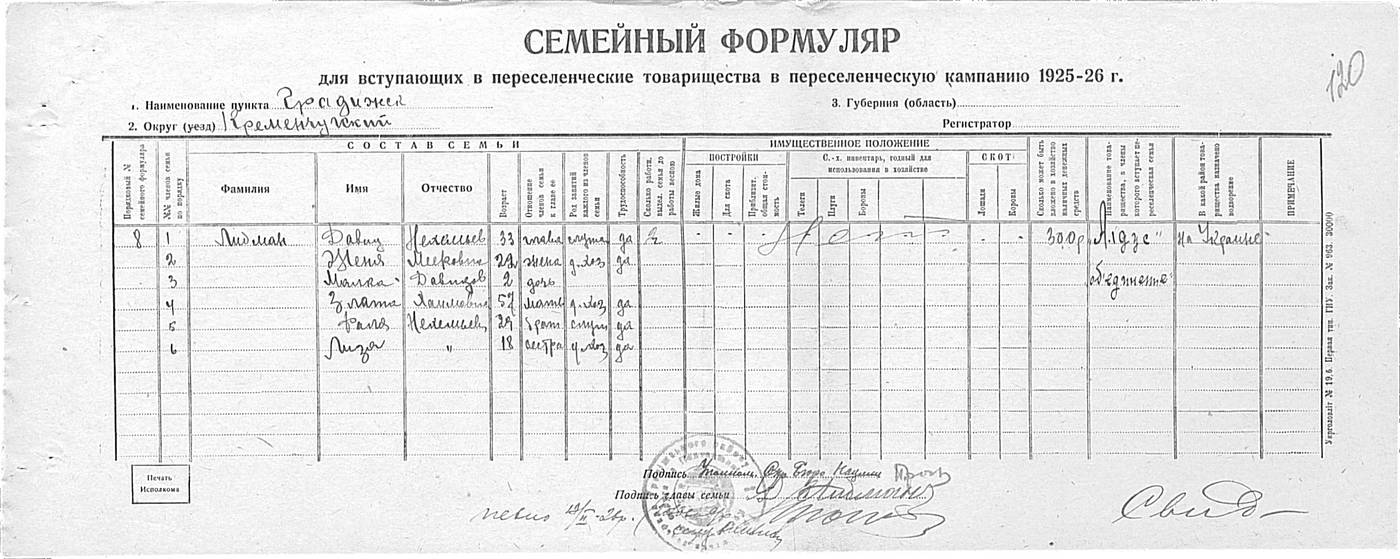 120
СЕМЕЙНЫЙ ФОРМУЛЯР
для вступающих в переселенческие товарищества в переселенческую кампанию 1925-26 г.
1. Наименование пункта Градижск 3. Губерния (область)
2. Округ (уезд) Кременчугский Регистратор
СОСТАВ СЕМЬИ ИМУЩЕСТВЕННОЕ ПОЛОЖЕНИЕ
ПОСТРОЙКИ С.-х. инвентарь, годный для использования в хозяйстве СКОТ:
Порядковый № семейного формуляра №№ членов семьи по порядку Фамилия Имя Отчество Возраст Отношение членов семьи к главе ее Род занятий каждого из членов семьи Трудоспособность Сколько работн. выдел. семья до работы весною Жилые дома Для скота Приблизит. общая стоимость Телеги Плуги Бороны Лошади Коровы Сколько может быть вложено в хозяйство наличных денежных средств Наименование товарищества, в члены которого вступает переселенческая семья В какой район товарищества назначено водворение ПРИМЕЧАНИЕ
8 1 Лидман Давид Нехемьев 33 глава служа да 2 Нет 300р „Лідзе" на Украине
2 Женя Меековна 22 жена д.хоз да
3 Малка Давидов 2 дочь объединение
4 Злата Хаимовна 57 мать д.хоз да
5 Нехемьев 29 брат служ да
6 Лиза " 18 сестра д.хоз да
Укрголовліт № 19,6. Первая тип. ГИУ. Зак. № 963. 30000
Печать Исполкома
Подпись
Подпись главы семьи